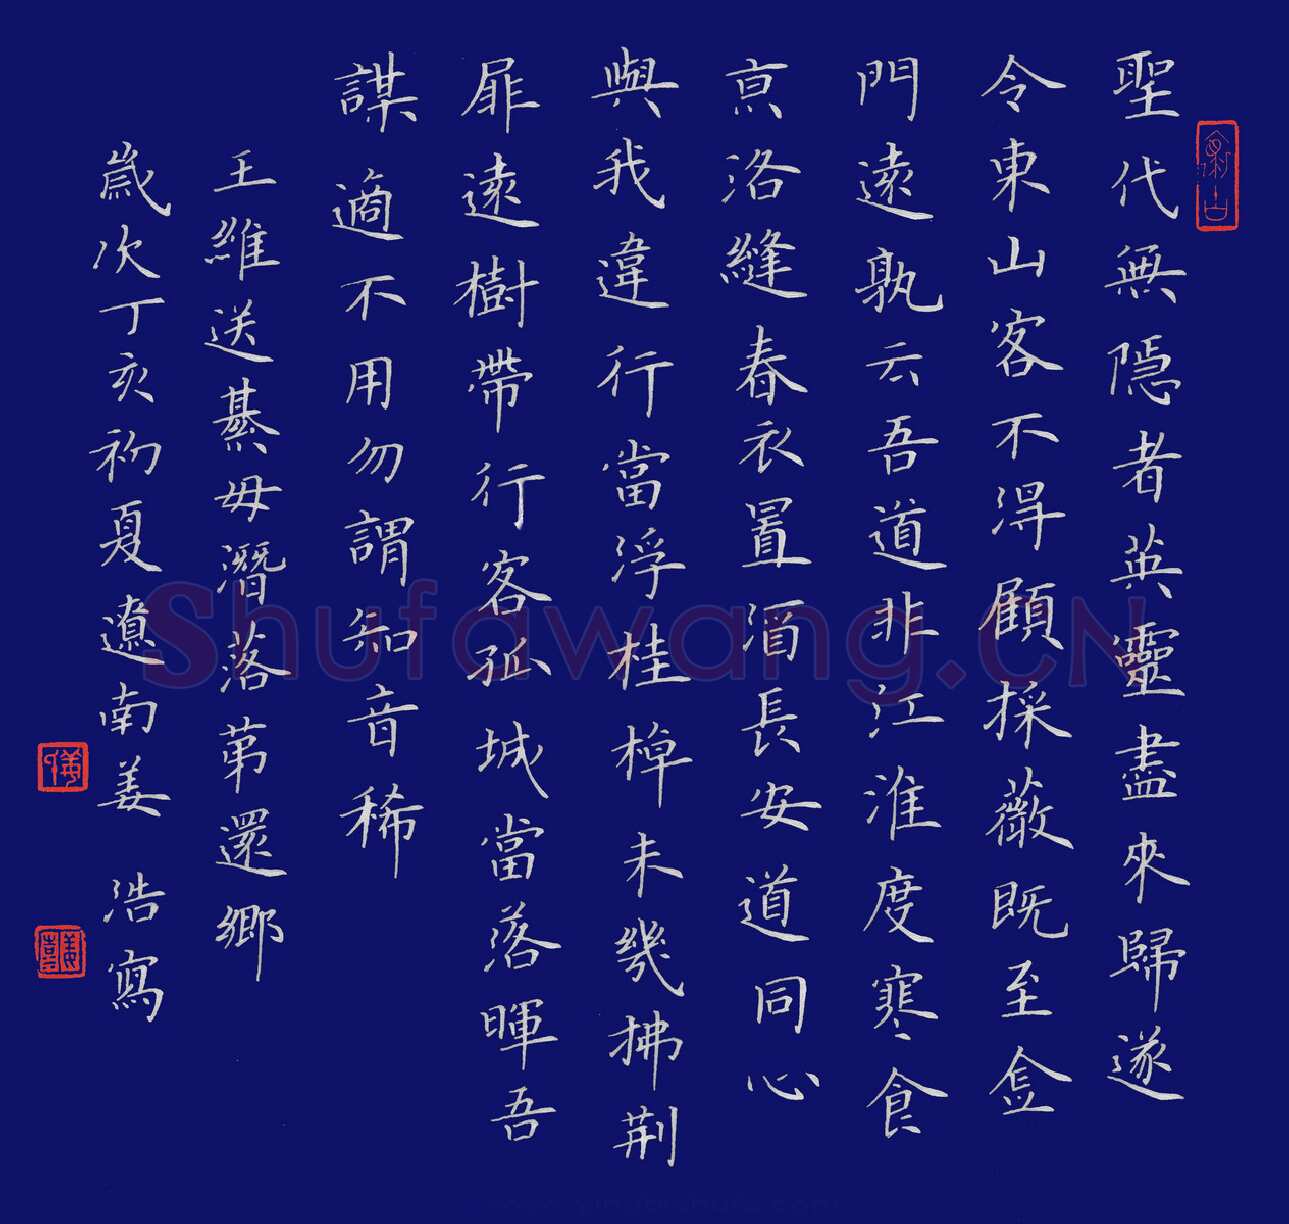 聖代無隱者英靈盡來歸遂
令東山客不得顧採薇既至金
門遠孰云吾道非江淮度寒食
亰洛縫春衣置酒長安道同心
與我違行當浮桂棹未幾拂荆
扉遠樹帶行客孤城當落暉吾
謀適不用勿謂知音稀
王維送綦毋潛落第還鄉
歲次丁亥初夏遼南姜浩寫
Shufawang.CN